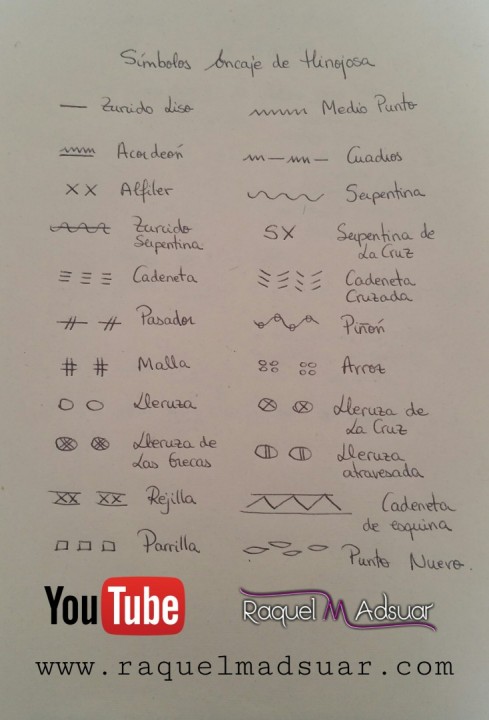 Símbolos Encaje de Hinojosa
Zurcido Liso
Medio Punto
Acordeón
Cuadros
XX Alfiler
Serpentina
Zurcido
Serpentina
SX Serpentina de
La Cruz
Cadeneta
Cadeneta
Cruzada
Pasador
Piñón
# # Malla
Arroz
Lleruza
Lleruza de
La Cruz
Lleruza de
Las Grecas
Lleruza
atravesada
Rejilla
Cadeneta
de esquina
Parrilla
Punto Nuevo.
YouTube
Raquel M Adsuar
www.raquelmadsuar.com